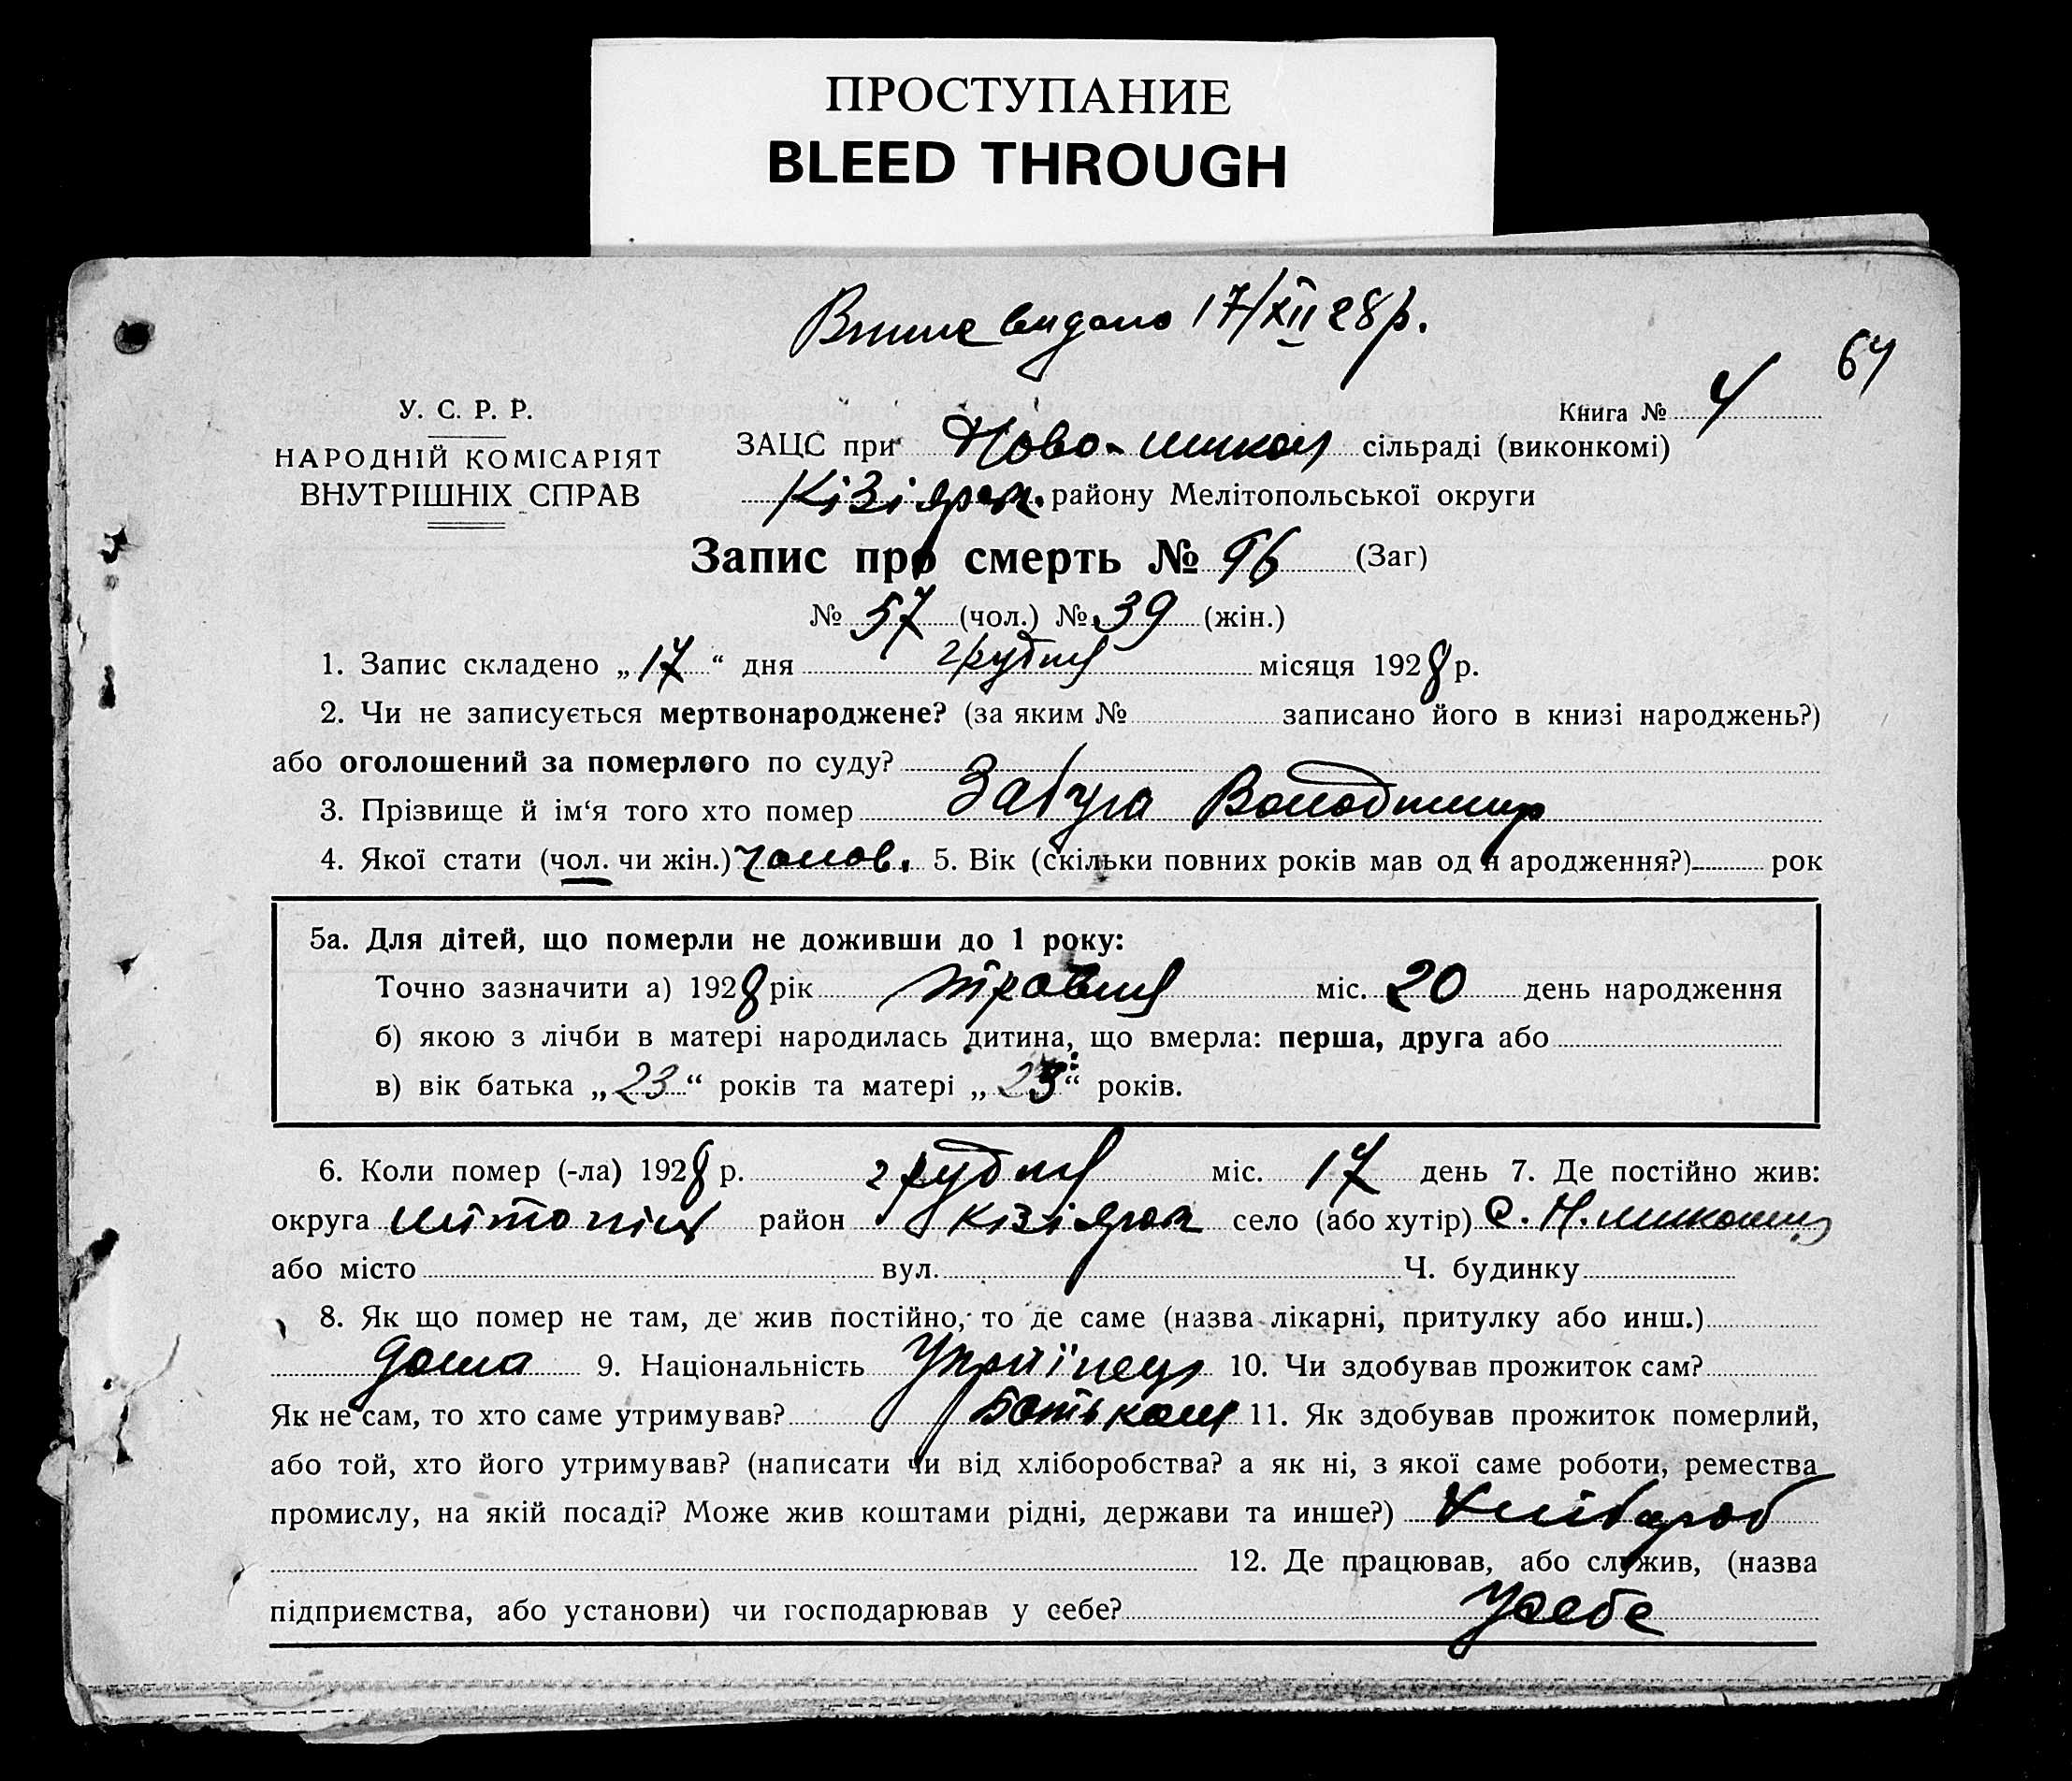 ПРОСТУПАНИЕ
BLEED THROUGH
видано 17/XII 28 р.
64
Книга № 4
У. С. Р. Р.
НАРОДНІЙ КОМІСАРІЯТ
ВНУТРІШНІХ СПРАВ
ЗАЦС при Ново-микол сільраді (виконкомі)
Кізіярск. району Мелітопольської округи
Запис про смерть № 96 (Заг)
№ 57 (чол.) № 39 (жін.)
1. Запис складено „17“ дня грудня місяця 1928 р.
2. Чи не записується мертвонароджене? (за яким № записано його в книзі народжень?)
або оголошений за померлого по суду?
3. Прізвище й ім‘я того хто помер Забуга Володимир
4. Якої стати (чол. чи жін.) чолов. 5. Вік (скільки повних років мав од н ародження?) рок
5а. Для дітей, що померли не доживши до 1 року:
Точно зазначити а) 1928 рік травня міс. 20 день народження
б) якою з лічби в матері народилась дитина, що вмерла: перша, друга або
в) вік батька „23“ років та матері „23“ років.
6. Коли помер (-ла) 1928 р. грудня міс. 17 день 7. Де постійно жив:
округа район Кізіярск село (або хутір) с. Н.
або місто вул. Ч. будинку
8. Як що помер не там, де жив постійно, то де саме (назва лікарні, притулку або инш.)
дома 9. Національність Українець 10. Чи здобував прожиток сам?
Як не сам, то хто саме утримував? 11. Як здобував прожиток померлий,
або той, хто його утримував? (написати чи від хліборобства? а як ні, з якої саме роботи, ремества
промислу, на якій посаді? Може жив коштами рідні, держави та инше?) Хлібороб
12. Де працював, або служив, (назва
підприємства, або установи) чи господарював у себе? У себе